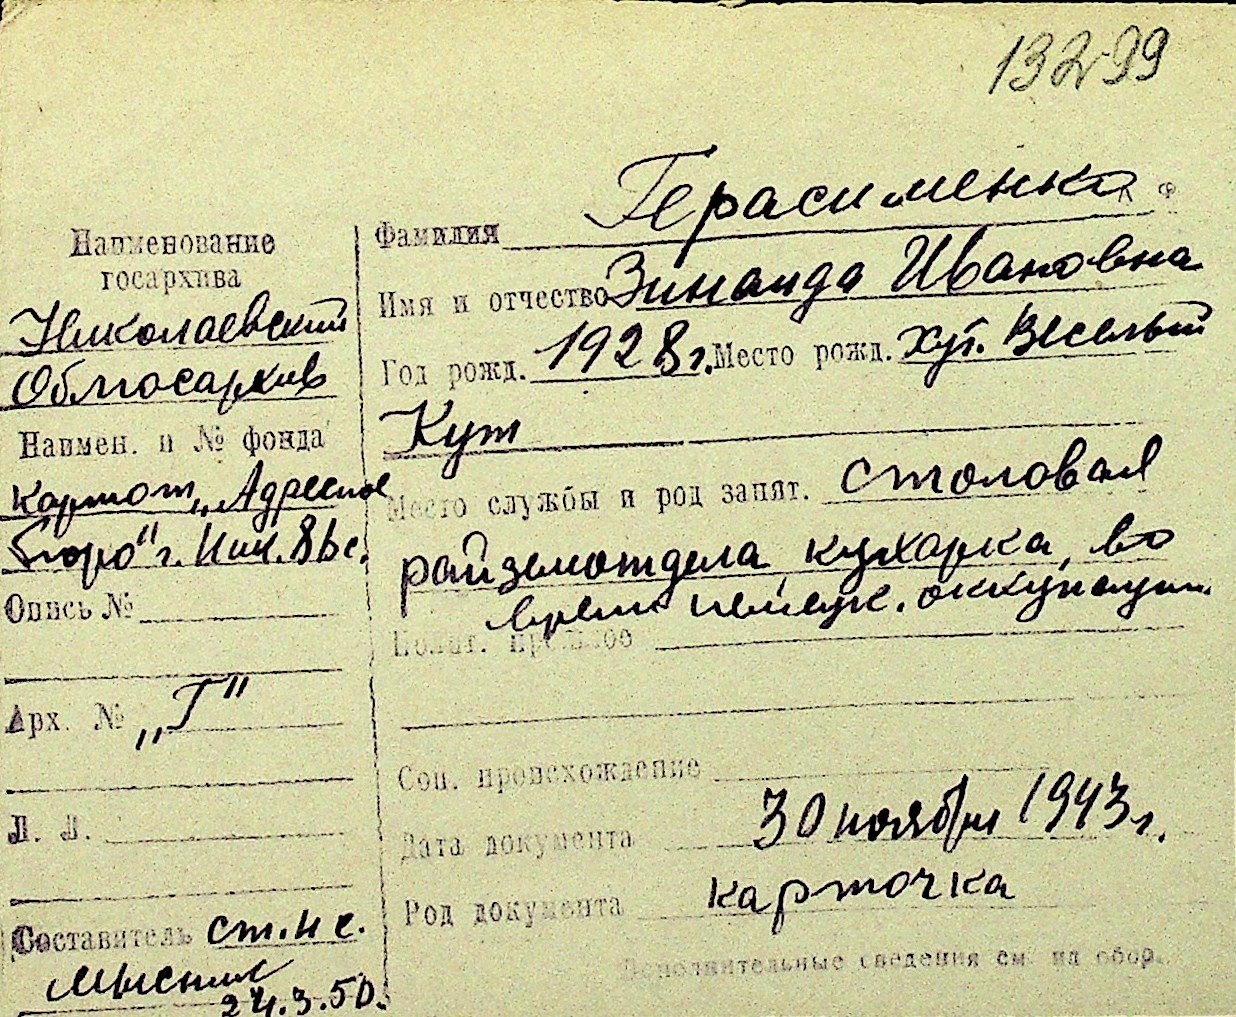 13299
Наименование
госархива
Николаевский
Облгосархив
Наимен. и № фонда
картот. „Адресное
бюро" г. Ник.
Опись №
Арх. № „Г"
Л. Л.
Составитель ст. н с.
24.3.50.
Фамилия Герасименко
Имя и отчество Зинаида Ивановна
Год рожд. 1928 г. Место рожд. хут. Веселый
Кут
Место службы и род занят. столовая
райземотдела, кухарка, во
время немецк. оккупации
Полит.
Соц. происхождение
Дата документа 30 ноября 1943 г.
Род документа карточка
Дополнительные сведения см. на обор.